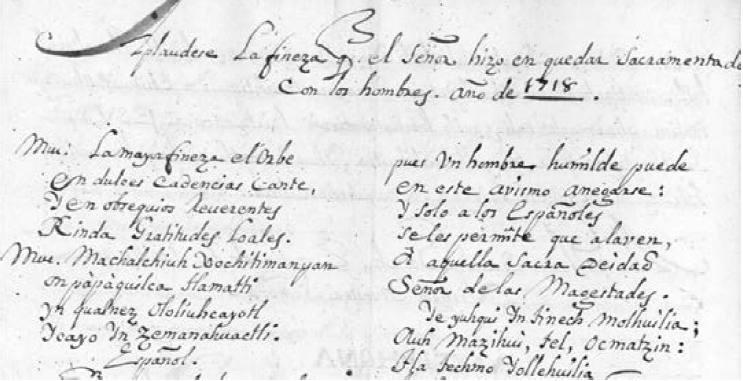 Aplaudese La fineza q. el Señor hizo en quedar Sacramentado
Con los hombres. Año de 1718.
Mus: La maya fineza el Orbe
en dulces Cadencias Cante,
Y en obsequios Reverentes
Rinda Gratitudes Loales.
Mus. Machalchiuh Xochitimanyan
on pàpaquilca tlamatti
yn qualnez Ololiuhcayotl
Ycayo Yn Zemanahuactli.
Español.
pues Un hombre humilde puede
en este avismo anegarse:
Y solo a los Españoles
se les permite que alaven,
à aquella Sacra Deidad
Señor de las Magestades.
De yuhqui Yn tinech Molhuilia;
Auh Mazihui, tel, Ocmatzin:
Tla techmo Yollehuilia